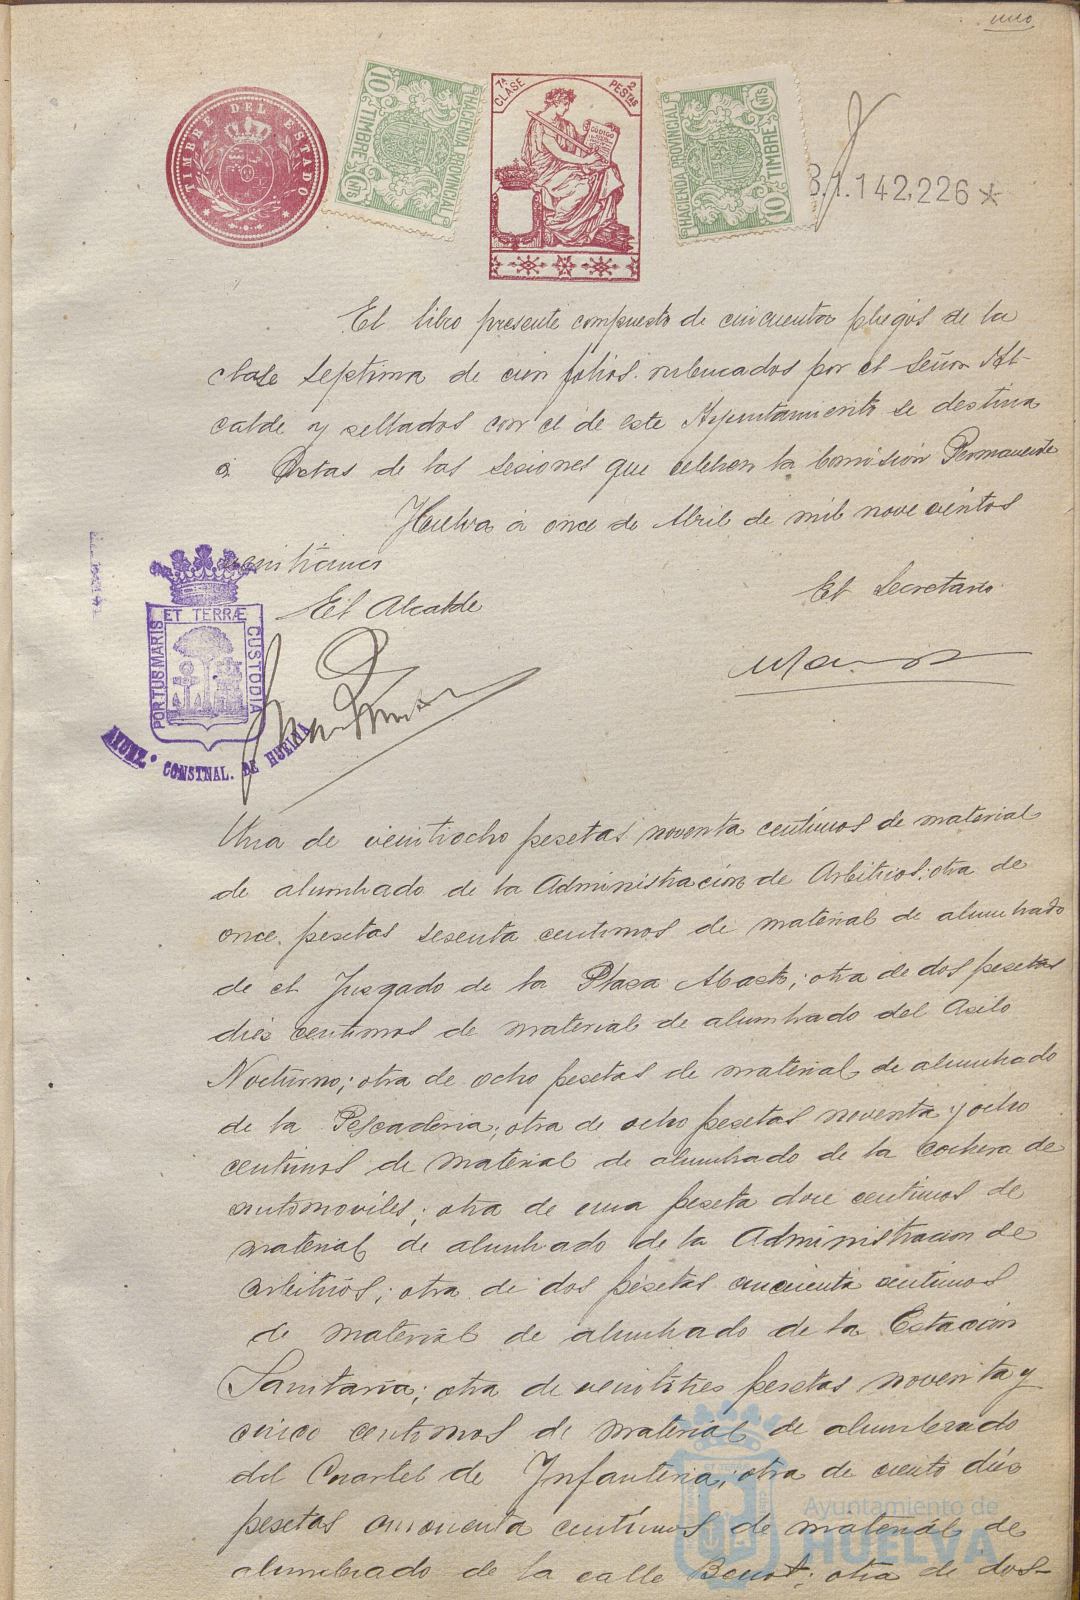 uno
TIMBRE DEL ESTADO
10 CTS
TIMBRE
HACIENDA PROVINCIAL
7ª CLASE
2 PESTAS
CÓDIGO
HACIENDA PROVINCIAL
TIMBRE
10 CTS
B.1.142,226*
El libro presente compuesto de cincuenta pliegos de la
clase septima de cien folios rubricados por el Señor Al-
calde y sellados con el de este Ayuntamiento se destina
a Actas de las sesiones que celebren la Comisión Permanente
Huelva a once de Abril de mil novecientos
El Secretario
El Alcalde
PORTUS MARIS ET TERRÆ CUSTODIA
AYUNT. CONSTNAL. DE HUELVA
Una de veintiocho pesetas noventa centimos de material
de alumbrado de la Administración de Arbitrios; otra de
once pesetas sesenta centimos de material de alumbrado
de el Juzgado de la Plaza Abasto; otra de dos pesetas
dies centimos de material de alumbrado del Asilo
Nocturno; otra de ocho pesetas de material de alumbrado
de la Pescaderia; otra de ocho pesetas noventa y ocho
centimos de material de alumbrado de la cochera de
automoviles; otra de una peseta doce centimos de
material de alumbrado de la Administracion de
arbitrios; otra de dos pesetas cincuenta centimos
de material de alumbrado de la Estacion
Sanitaria; otra de veintitres pesetas noventa y
cinco centimos de material de alumbrado
del Cuartel de Infanteria; otra de ciento dies
pesetas cincuenta centimos de material de
alumbrado de la calle Benot; otra de dos-
Ayuntamiento de
HUELVA